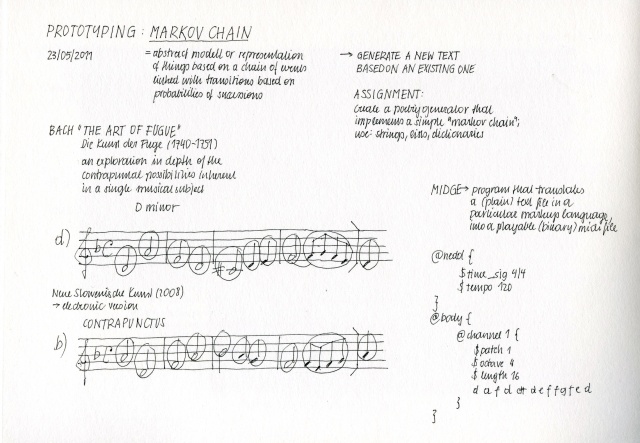 PROTOTYPING: MARKOV CHAIN
23/05/2011
= abstract modell or representation
of things based on a chain of events
linked with transitions based on
probabilities of successions
→ GENERATE A NEW TEXT
BASED ON AN EXISTING ONE
ASSIGNMENT:
create a poetry generator that
implements a simple "markov chain";
use: strings, lists, dictionaries
BACH "THE ART OF FUGUE"
Die Kunst der Fuge (1740-1751)
an exploration in depth of the
contrapuntal possibilities inherent
in a single musical subject
D minor
a)
Neue Slowenische Kunst (2008)
→ electronic version
CONTRAPUNCTUS
b)
MIDGE → program that translates
a (plain) text file in a
particular markup language
into a playable (binary) midi file
@head {
$time_sig 4/4
$tempo 120
}
@body {
@channel 1 {
$patch 1
$octave 4
$length 16
d a f d c# d e f f g f e d
}
}